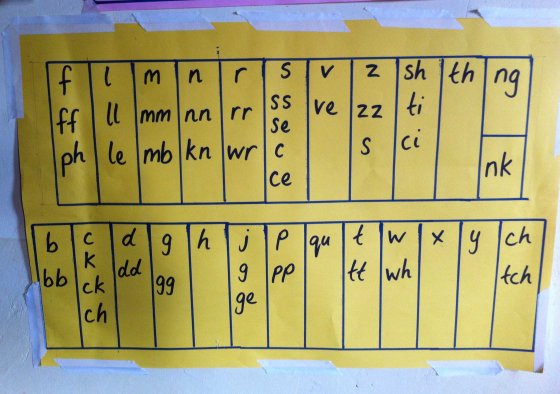 f l m n r s v z sh th ng
ff ll mm nn rr ss ve zz ti
se
ph le mb kn wr c s ci nk
ce
b c d g h j p qu t w x y ch
bb k dd gg g pp tt wh tch
ck ge
ch